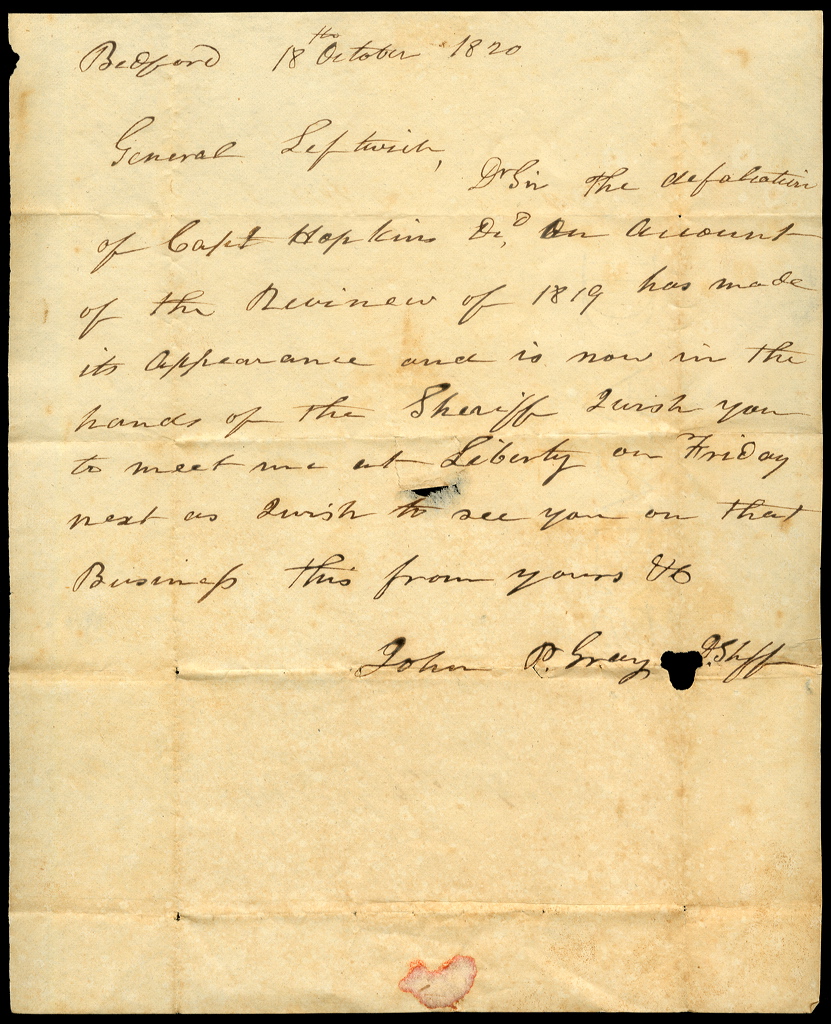 Bedford 18th October 1820
General Leftwich,
Dr Sir the defalcation
of Capt Hopkins Decd, On account
of the Revinew of 1819 has made
its Appearance and is now in the
hands of the Sheriff I wish you
to meet me at Liberty on Friday
next as I wish to see you on that
Business this from yours &c
John P. Gray D. Shff